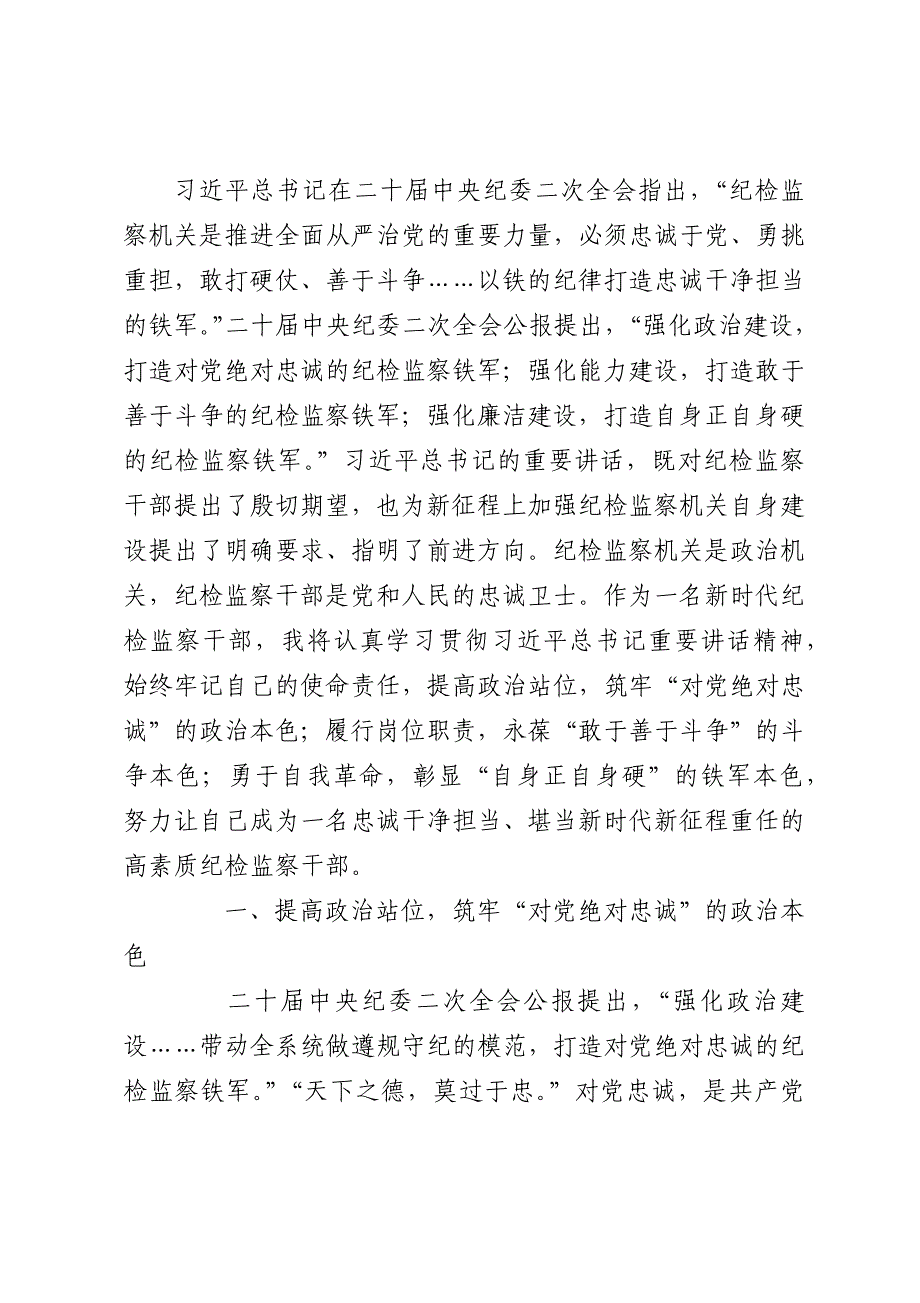 习近平总书记在二十届中央纪委二次全会指出，“纪检监
察机关是推进全面从严治党的重要力量，必须忠诚于党、勇挑
重担，敢打硬仗、善于斗争……以铁的纪律打造忠诚干净担当
的铁军。”二十届中央纪委二次全会公报提出，“强化政治建设，
打造对党绝对忠诚的纪检监察铁军；强化能力建设，打造敢于
善于斗争的纪检监察铁军；强化廉洁建设，打造自身正自身硬
的纪检监察铁军。”习近平总书记的重要讲话，既对纪检监察
干部提出了殷切期望，也为新征程上加强纪检监察机关自身建
设提出了明确要求、指明了前进方向。纪检监察机关是政治机
关，纪检监察干部是党和人民的忠诚卫士。作为一名新时代纪
检监察干部，我将认真学习贯彻习近平总书记重要讲话精神，
始终牢记自己的使命责任，提高政治站位，筑牢“对党绝对忠
诚”的政治本色；履行岗位职责，永葆“敢于善于斗争”的斗
争本色；勇于自我革命，彰显“自身正自身硬”的铁军本色，
努力让自己成为一名忠诚干净担当、堪当新时代新征程重任的
高素质纪检监察干部。
一、提高政治站位，筑牢“对党绝对忠诚”的政治本
色
二十届中央纪委二次全会公报提出，“强化政治建
设……带动全系统做遵规守纪的模范，打造对党绝对忠诚的纪
检监察铁军。”“天下之德，莫过于忠。”对党忠诚，是共产党